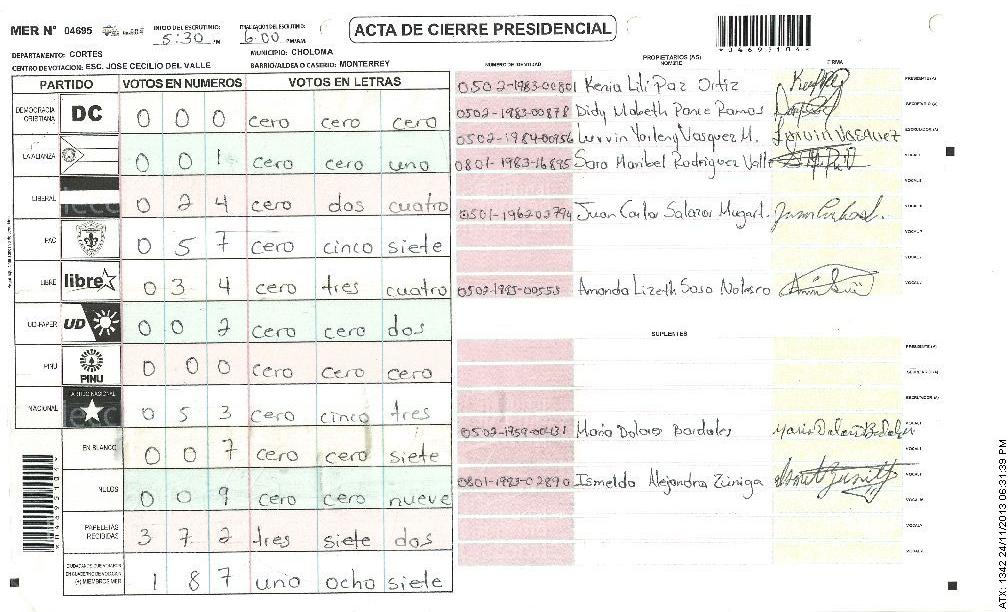 MER Nº 04695
INICIO DEL ESCRUTINIO: 5:30 PM
FINALIZACION DEL ESCRUTINIO: 6:00 PM/AM
ACTA DE CIERRE PRESIDENCIAL
*04695104*
DEPARTAMENTO: CORTES
MUNICIPIO: CHOLOMA
CENTRO DE VOTACION: ESC. JOSE CECILIO DEL VALLE
BARRIO/ALDEA O CASERIO: MONTERREY
PARTIDO VOTOS EN NUMEROS VOTOS EN LETRAS
DEMOCRACIA CRISTIANA DC 0 0 0 cero cero cero
LA ALIANZA 0 0 1 cero cero uno
LIBERAL 0 2 4 cero dos cuatro
PAC 0 5 7 cero cinco siete
LIBRE libre 0 3 4 cero tres cuatro
UD-FAPER UD 0 0 2 cero cero dos
PINU PINU 0 0 0 cero cero cero
NACIONAL PARTIDO NACIONAL 0 5 3 cero cinco tres
EN BLANCO 0 0 7 cero cero siete
NULOS 0 0 9 cero cero nueve
PAPELETAS RECIBIDAS 3 7 2 tres siete dos
CIUDADANOS QUE VOTARON (+) MIEMBROS MER 1 8 7 uno ocho siete
NUMERO DE IDENTIDAD PROPIETARIOS (AS) NOMBRE FIRMA
0502-1983-00801 Kenia Lili Paz Ortiz PRESIDENTE(A)
0502-1983-00878 Didy Mabeth Ponce Ramos SECRETARIO(A)
0502-1984-00956 Lurvin Yorleny Vasquez M. Lurvin Vasquez ESCRUTADOR(A)
0801-1983-16895 Sara Maribel Rodriguez Valle VOCAL
VOCAL
0501-1962-02794 Juan Carlos Salazar VOCAL
VOCAL
VOCAL
0502-1985-00555 Amanda Lizeth Soso VOCAL
SUPLENTES
PRESIDENTE(A)
SECRETARIO(A)
ESCRUTADOR(A)
0502-1959-00431 Maria Dolores Bardales VOCAL
VOCAL
0801-1983-02890 Ismelda Alejandra Zúniga VOCAL
VOCAL
VOCAL
VOCAL
ATX: 1342 24/11/2013 06:31:39 PM